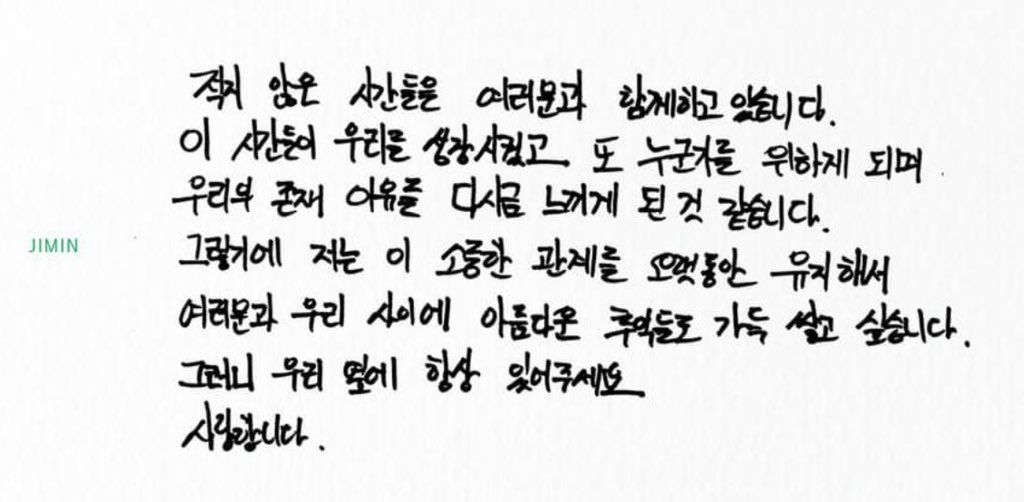 적지 않은 시간들을 여러분과 함께하고 있습니다.
이 시간들이 우리를 성장시켰고. 또 누군가를 위하게 되며
우리의 존재 이유를 다시금 느끼게 된 것 같습니다.
JIMIN
그렇기에 저는 이 소중한 관계를 오랫동안 유지해서
여러분과 우리 사이에 아름다운 추억들로 가득 쌓고 싶습니다.
그러니 우리 옆에 항상 있어주세요
사랑합니다.